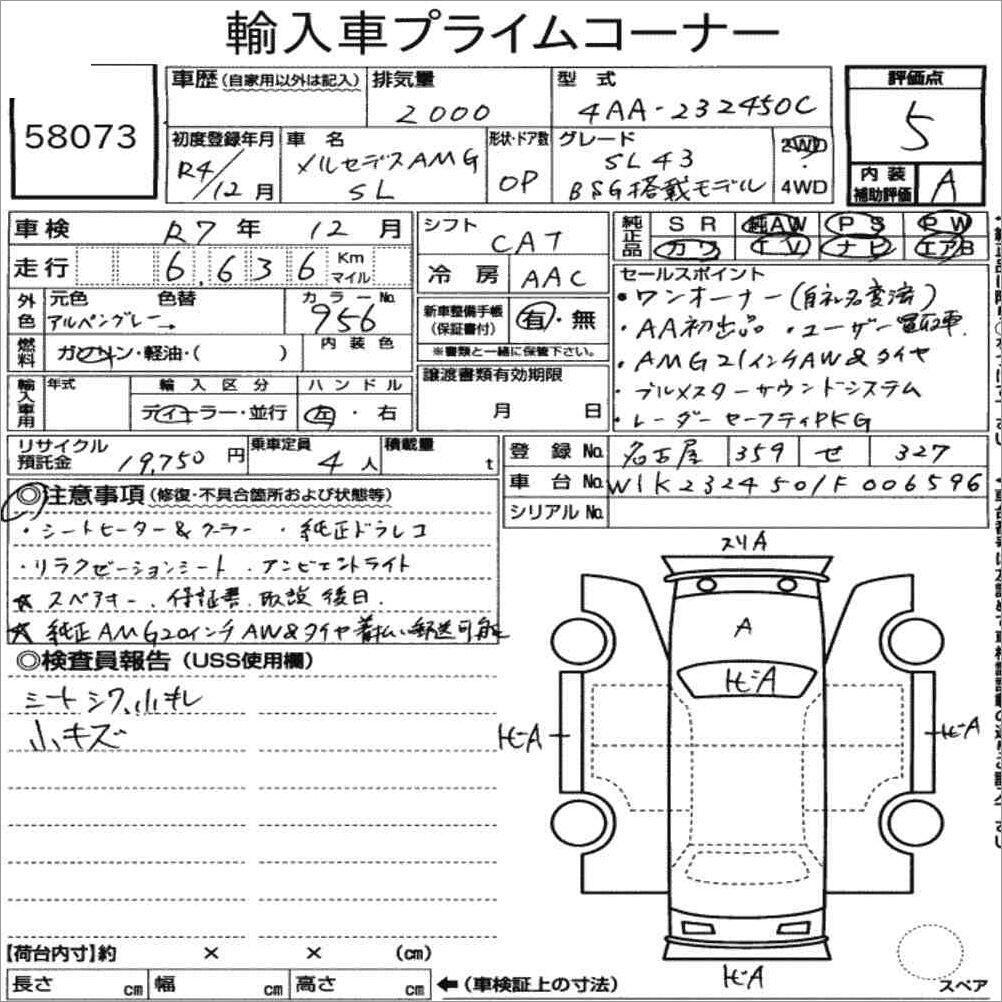 輸入車プライムコーナー
58073
車歴(自家用以外は記入)
排気量
2000
型式
4AA-232450C
評価点
5
初度登録年月
R4/12月
車名
メルセデスAMG
SL
形状・ドア数
OP
グレード
SL43
BSG搭載モデル
2WD
・
4WD
内装
補助評価
A
車検 R7年 12月
走行 6,636 Km
マイル
シフト CAT
冷房 AAC
純正品
SR 純AW PS PW
カワ TV ナビ エアB
外色
元色 色替
アルペングレー→
カラーNo.
956
内装色
燃料
ガソリン・軽油・( )
新車整備手帳
(保証書付)
有・無
※書類と一緒に保管下さい。
セールスポイント
・ワンオーナー(自社名変済)
・AA初出品 ・ユーザー買取車
・AMG21インチAW&タイヤ
・ブルメスターサウンドシステム
・レーダーセーフティPKG
輸入車用
年式
輸入区分
ディーラー・並行
ハンドル
左・右
譲渡書類有効期限
月 日
リサイクル
預託金
19,750円
乗車定員
4人
積載量
t
登録No. 名古屋 359 せ 327
車台No. W1K2324501F006596
シリアルNo.
◎注意事項(修復・不具合箇所および状態等)
・シートヒーター&クーラー ・純正ドラレコ
・リラクゼーションシート ・アンビエントライト
☆スペアキー、保証書、取説 後日.
☆純正AMG20インチAW&タイヤ着払い郵送可能
◎検査員報告(USS使用欄)
シートシワ、小キレ
小キズ
スリA
A
トビA
トビA
トビA
トビA
【荷台内寸】約 × × (cm)
長さ cm 幅 cm 高さ cm ←(車検証上の寸法)
スペア